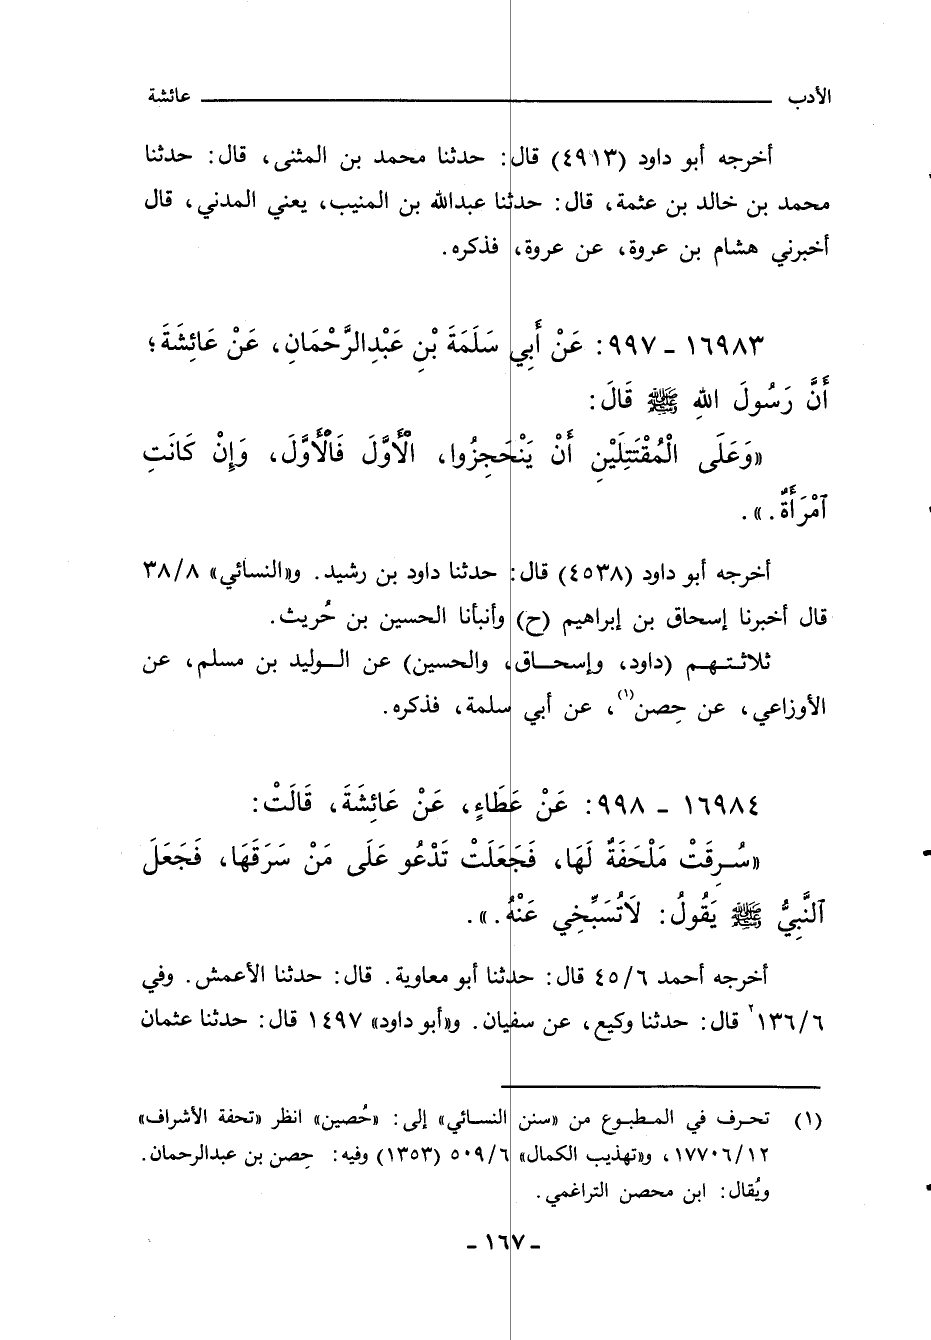 الأدب ــــــــــ عائشة
أخرجه أبو داود (٤٩١٣) قال: حدثنا محمد بن المثنى، قال: حدثنا
محمد بن خالد بن عثمة، قال: حدثنا عبدالله بن المنيب، يعني المدني، قال
أخبرني هشام بن عروة، عن عروة، فذكره.
١٦٩٨٣ - ٩٩٧: عَنْ أَبِي سَلَمَةَ بْنِ عَبْدِالرَّحْمَانِ، عَنْ عَائِشَةَ؛
أَنَّ رَسُولَ اللهِ ﷺ قَالَ:
«وَعَلَى الْمُقْتَتِلَيْنِ أَنْ يَنْحَجِزُوا، الْأَوَّلَ فَالْأَوَّلَ، وَإِنْ كَانَتِ
ٱمْرَأَةٌ.».
أخرجه أبو داود (٤٥٣٨) قال: حدثنا داود بن رشيد. و«النسائي» ٣٨/٨
قال أخبرنا إسحاق بن إبراهيم (ح) وأنبأنا الحسين بن حُريث.
ثلاثتهم (داود، وإسحاق، والحسين) عن الوليد بن مسلم، عن
الأوزاعي، عن حِصن(١)، عن أبي سلمة، فذكره.
١٦٩٨٤ - ٩٩٨: عَنْ عَطَاءٍ، عَنْ عَائِشَةَ، قَالَتْ:
«سُرِقَتْ مَلْحَفَةٌ لَهَا، فَجَعَلَتْ تَدْعُو عَلَى مَنْ سَرَقَهَا، فَجَعَلَ
ٱلنَّبِيُّ ﷺ يَقُولُ: لَاتُسَبِّخِي عَنْهُ.».
أخرجه أحمد ٤٥/٦ قال: حدثنا أبو معاوية. قال: حدثنا الأعمش. وفي
١٣٦/٦ قال: حدثنا وكيع، عن سفيان. و«أبو داود» ١٤٩٧ قال: حدثنا عثمان
(١) تحرف في المطبوع من «سنن النسائي» إلى: «حُصين» انظر «تحفة الأشراف»
١٧٧٠٦/١٢، و«تهذيب الكمال» ٥٠٩/٦ (١٣٥٣) وفيه: حِصن بن عبدالرحمان.
ويُقال: ابن محصن التراغمي.
- ١٦٧ -